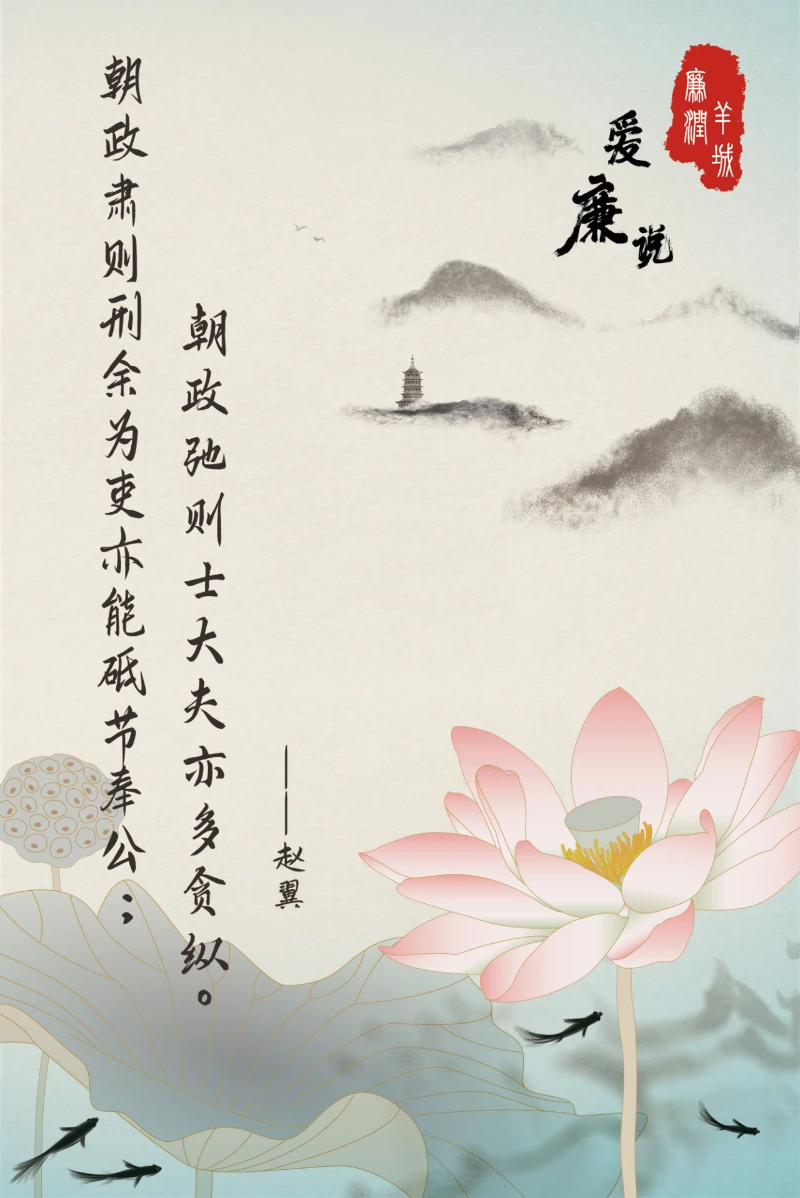 廉潤
羊城
爱廉说
朝政肃则刑余为吏亦能砥节奉公；
朝政弛则士大夫亦多贪纵。
——赵翼